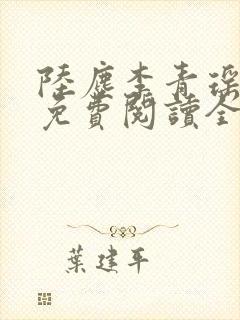 陸塵李青瑶
免費閱讀全
葉建平